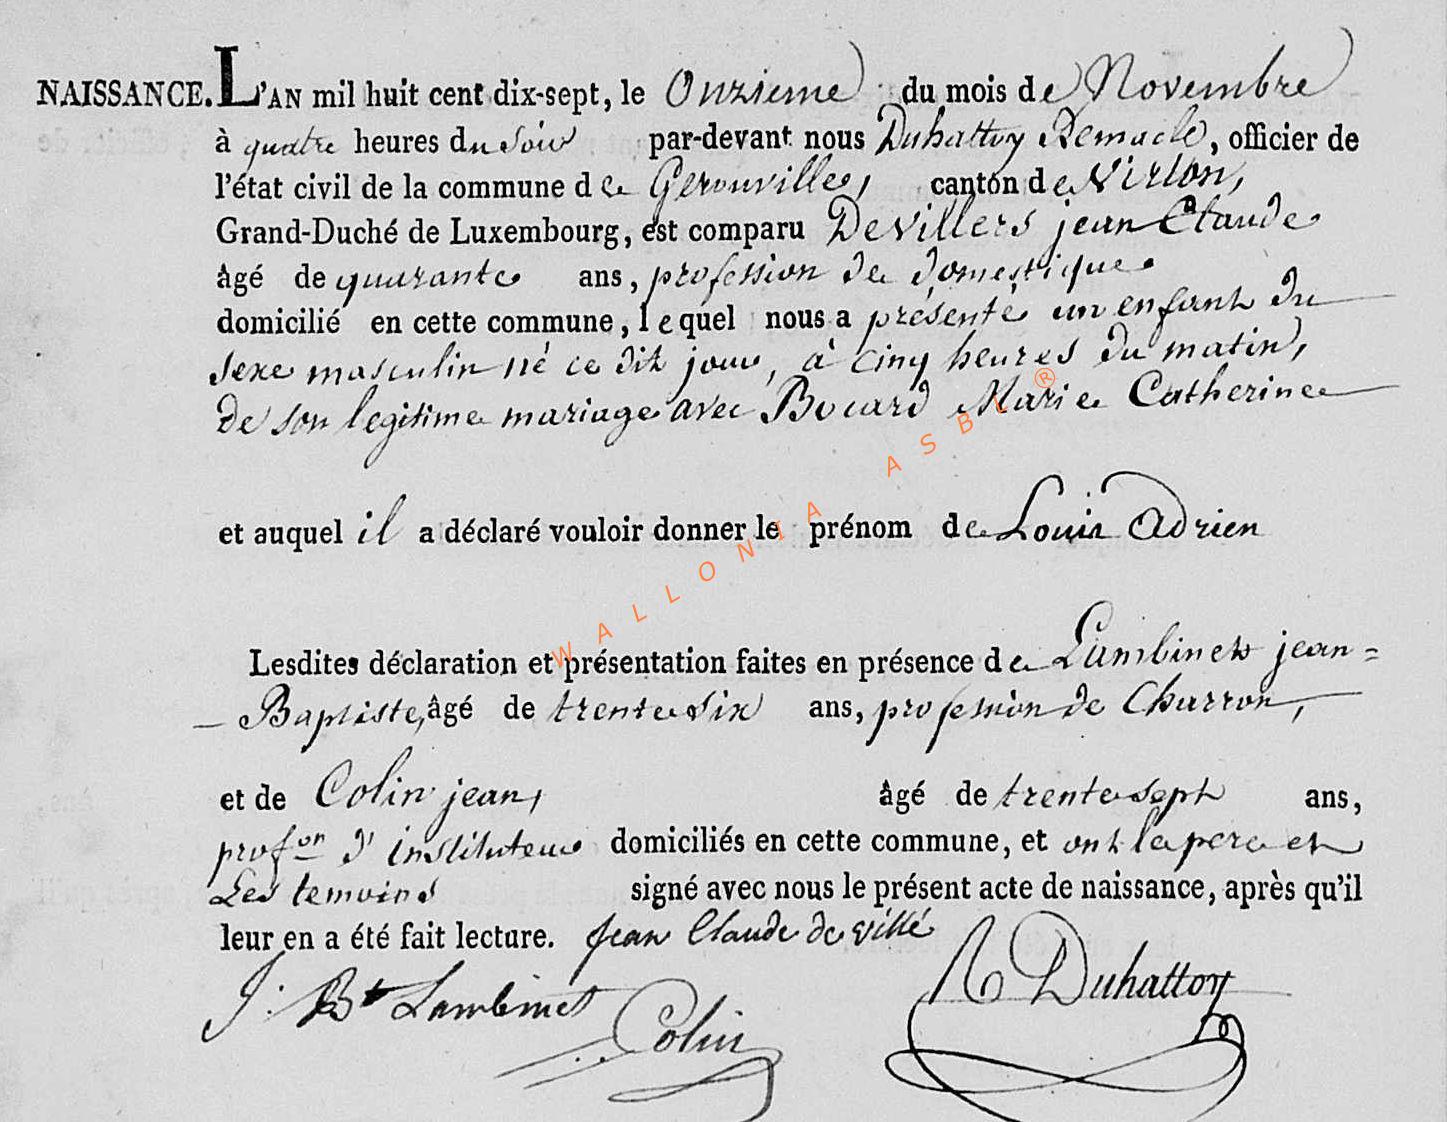 NAISSANCE. L'AN mil huit cent dix-sept, le Onzieme du mois de Novembre
à quatre heures du soir par-devant nous Duhattoy Remacle, officier de
l'état civil de la commune de Gerouville, canton de Virton,
Grand-Duché de Luxembourg, est comparu DeVillers jean Claude
âgé de quarante ans, profession de domestique
domicilié en cette commune, lequel nous a présenté un enfant du
sexe masculin né ce dit jour, à cinq heures du matin,
de son legitime mariage avec Bocard Marie Catherine
et auquel il a déclaré vouloir donner le prénom de Louis Adrien
Lesdites déclaration et présentation faites en présence de Lambinet jean=
- Baptiste, âgé de trente six ans, profession de Charron,
et de Colin jean, âgé de trente sept ans,
prof.on d'instituteur domiciliés en cette commune, et ont le pere et
Les temoins signé avec nous le présent acte de naissance, après qu'il
leur en a été fait lecture. Jean Claude de villé
J. Bt Lambinet Colin R Duhattoy
WALLONIA ASBL ®